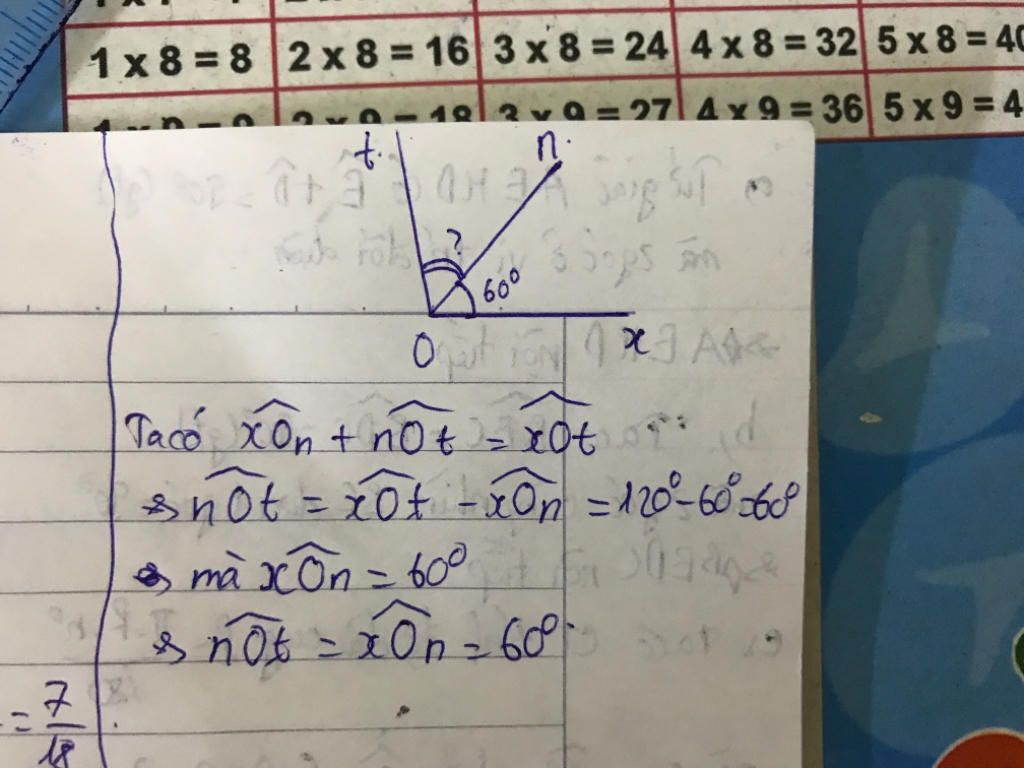 1 x 8 = 8 2 x 8 = 16 3 x 8 = 24 4 x 8 = 32 5 x 8 = 40
2 x 9 = 18 3 x 9 = 27 4 x 9 = 36 5 x 9 = 4
t n
?
60°
O x
Ta có xÔn + nÔt = xÔt
⇒ nÔt = xÔt - xÔn = 120° - 60° = 60°
⇒ mà xÔn = 60°
⇒ nÔt = xÔn = 60°
= 7/18